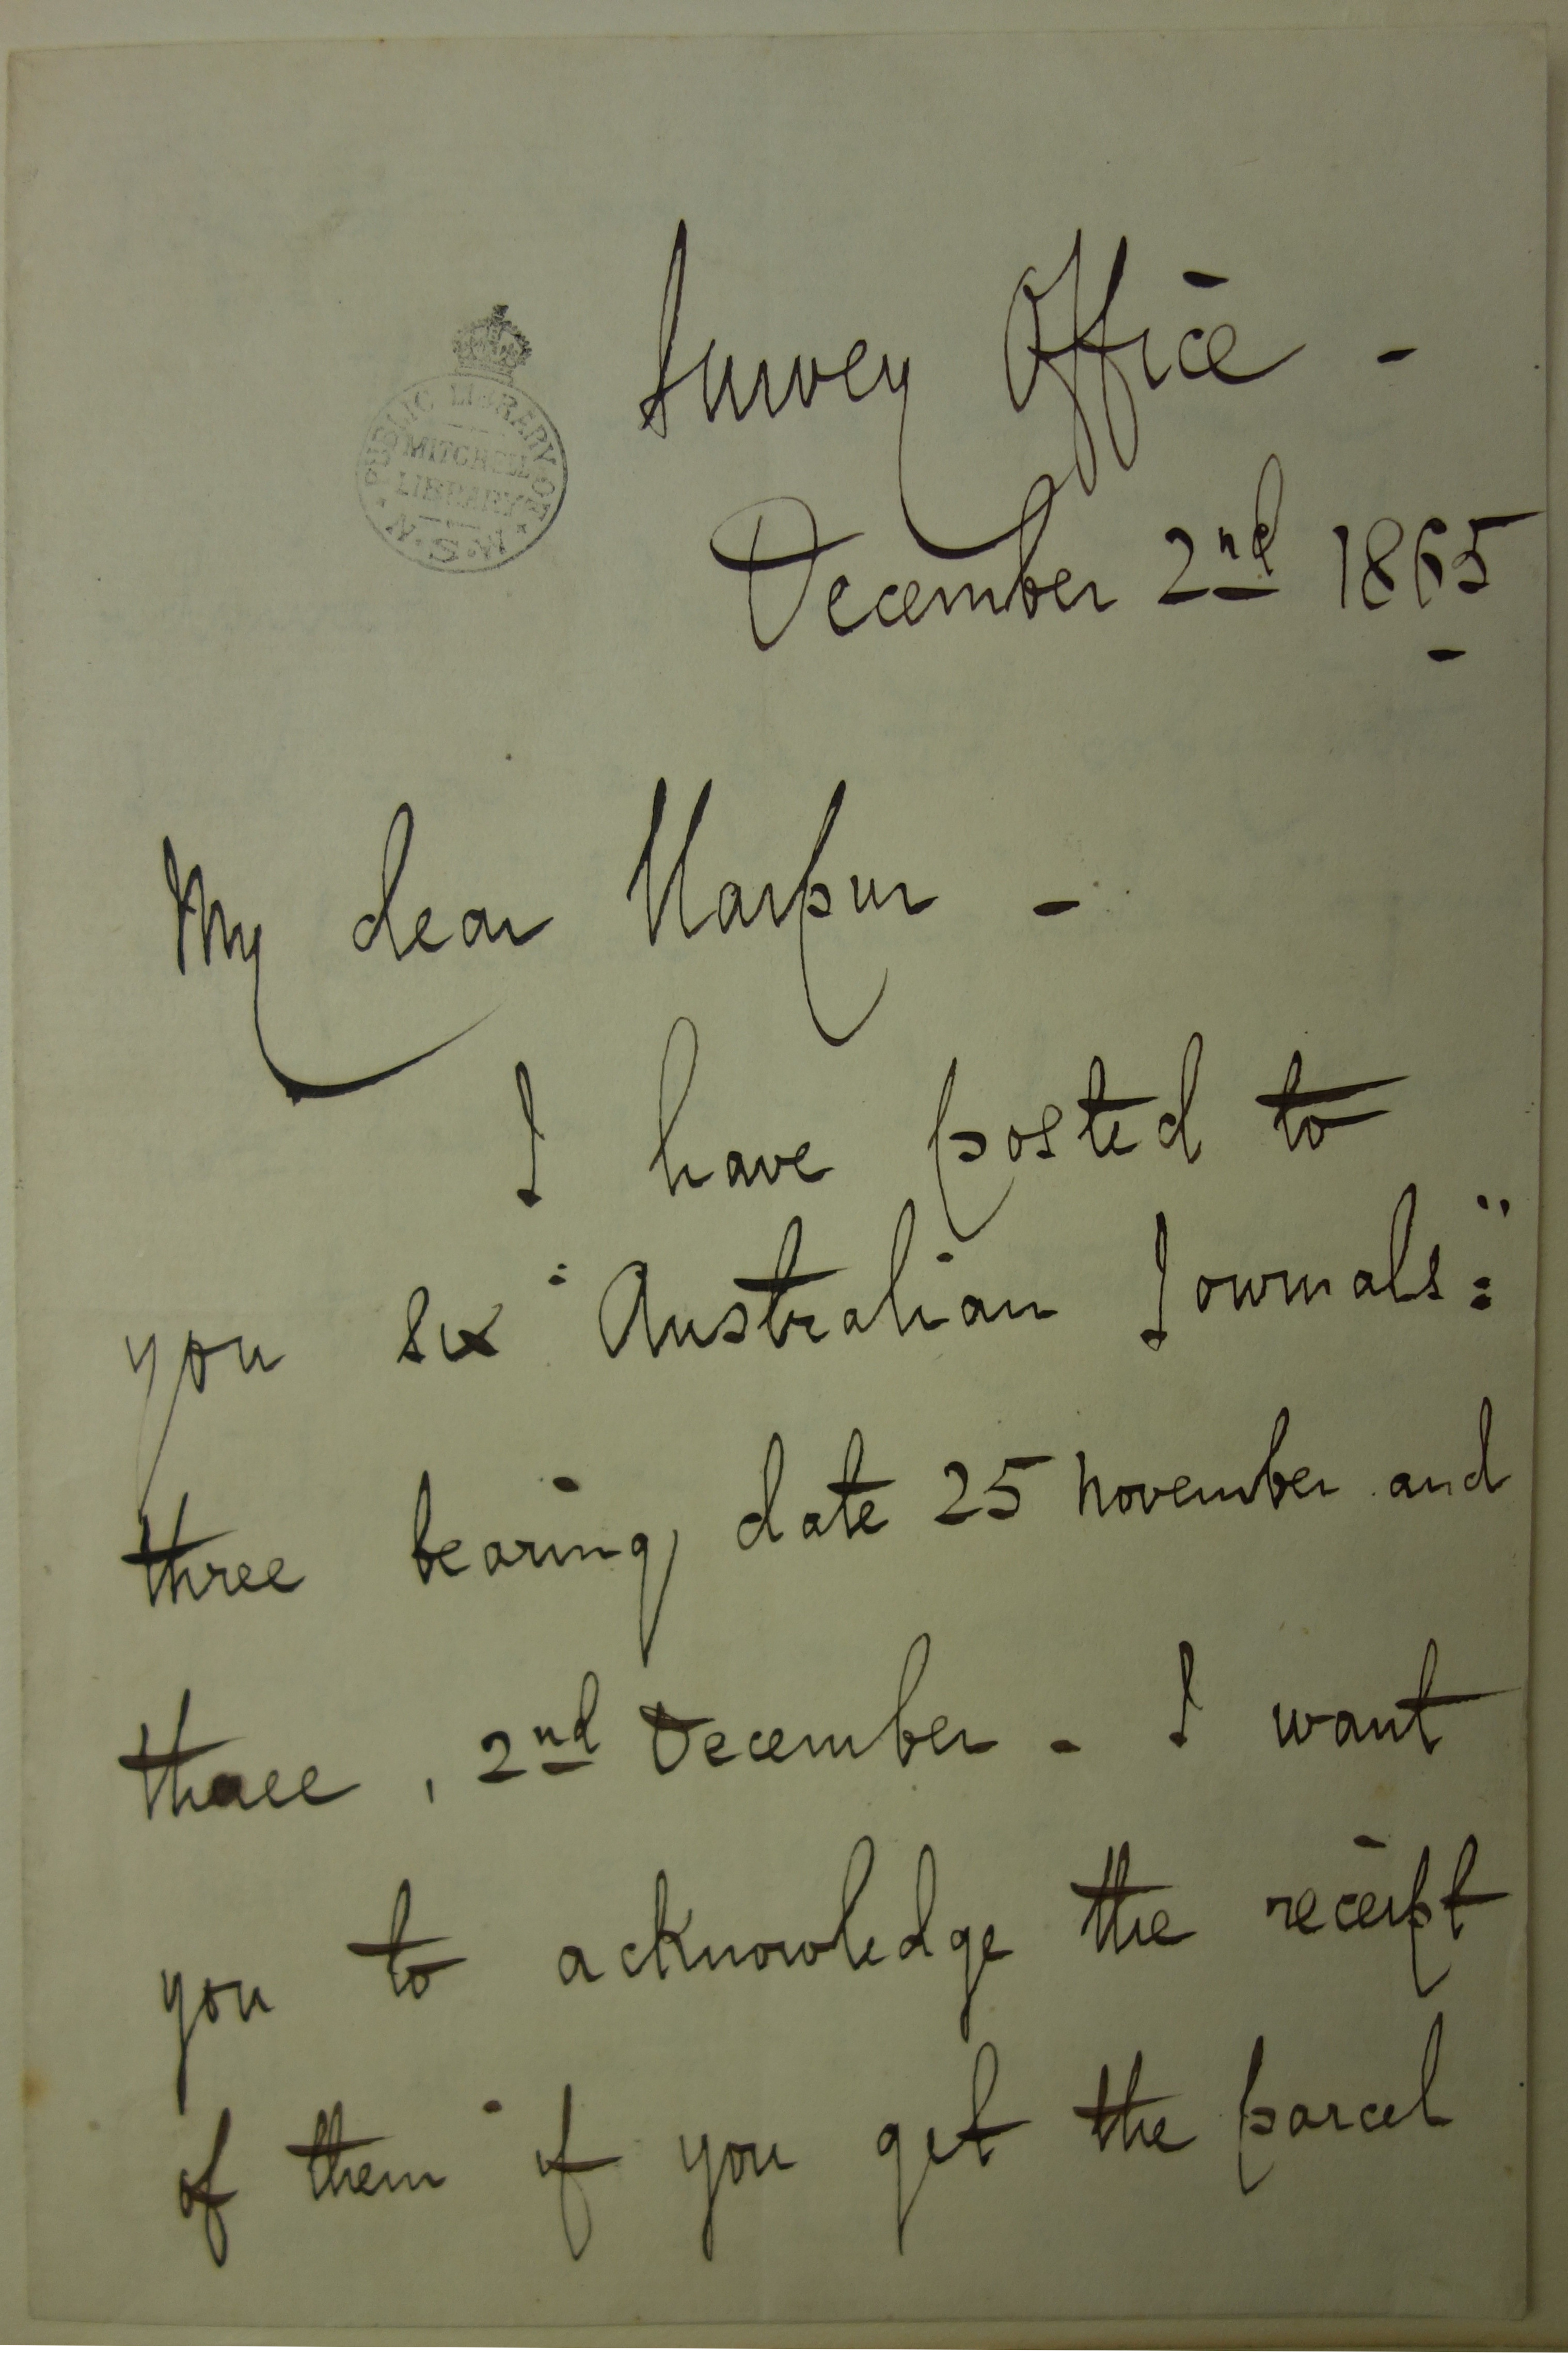 Survey Office -
PUBLIC LIBRARY OF
MITCHELL
LIBRARY
N.S.W.
December 2nd 1865
My dear Harpur -
I have posted to
you six "Australian Journals:"
three bearing date 25 November and
three, 2nd December - I want
you to acknowledge the receipt
of them if you get the parcel